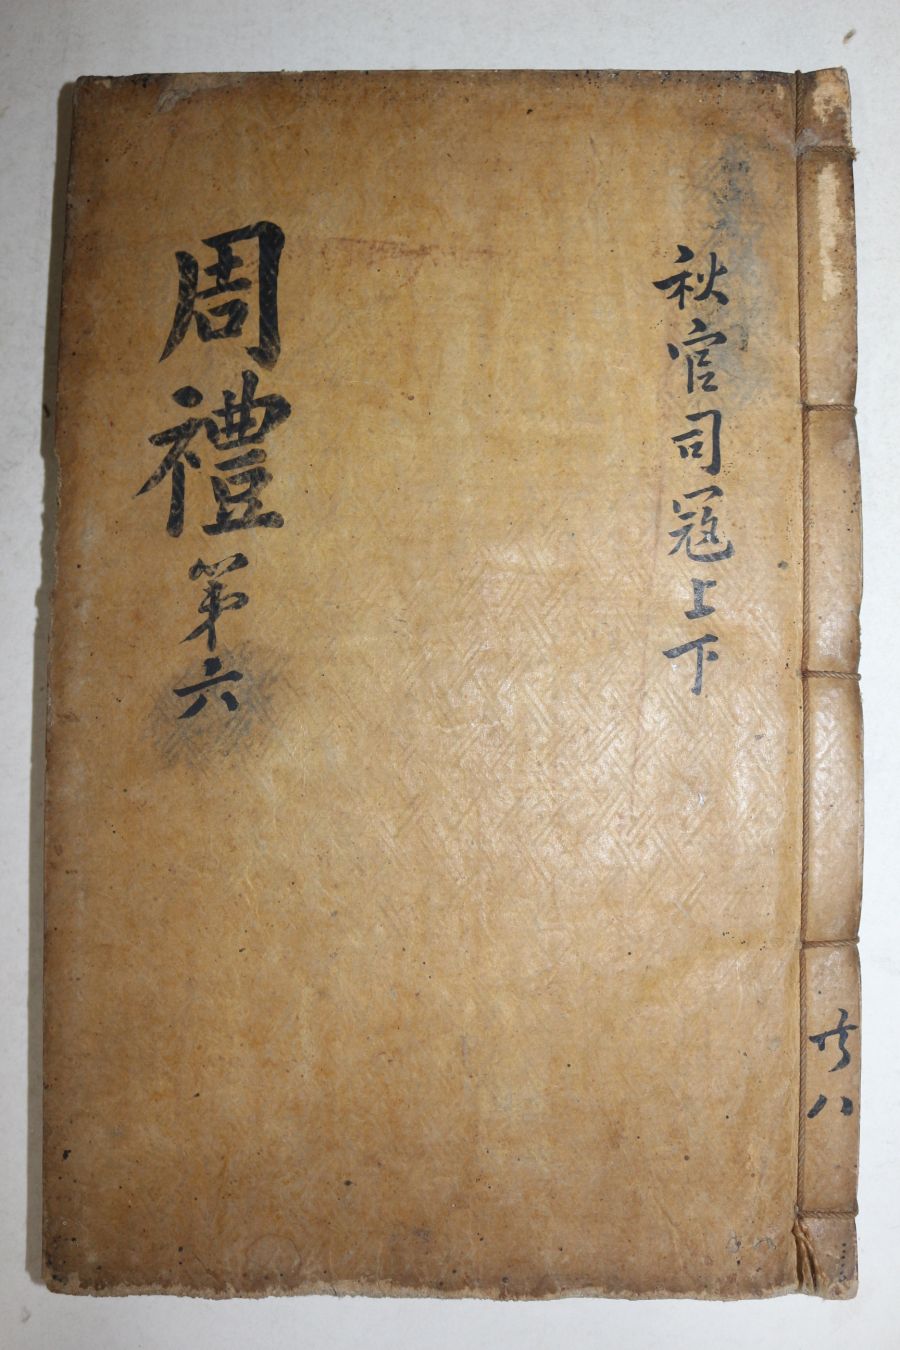 秋官司冦上下
周禮
第六
共八